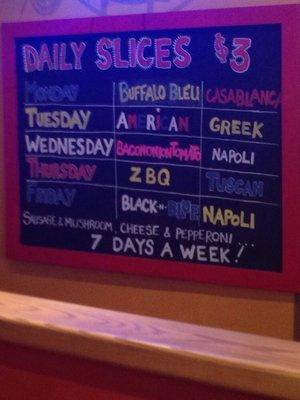 DAILY SLICES $3
MONDAY BUFFALO BLEU CASABLANCA
TUESDAY AMERICAN GREEK
WEDNESDAY BACONONIONTOMATO NAPOLI
THURSDAY ZBQ TUSCAN
FRIDAY BLACK-N-BLEU NAPOLI
SAUSAGE & MUSHROOM, CHEESE & PEPPERONI...
7 DAYS A WEEK!